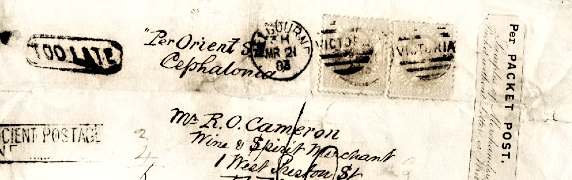 TOO LATE
"Per Orient S.
Cephalonia
BOURNE
H
MR 21
83
VICTO
VICTORIA
Per PACKET POST.
CIENT POSTAGE
Mr R. O. Cameron
Wine & Spirit Merchant
1 West Preston St
2
4